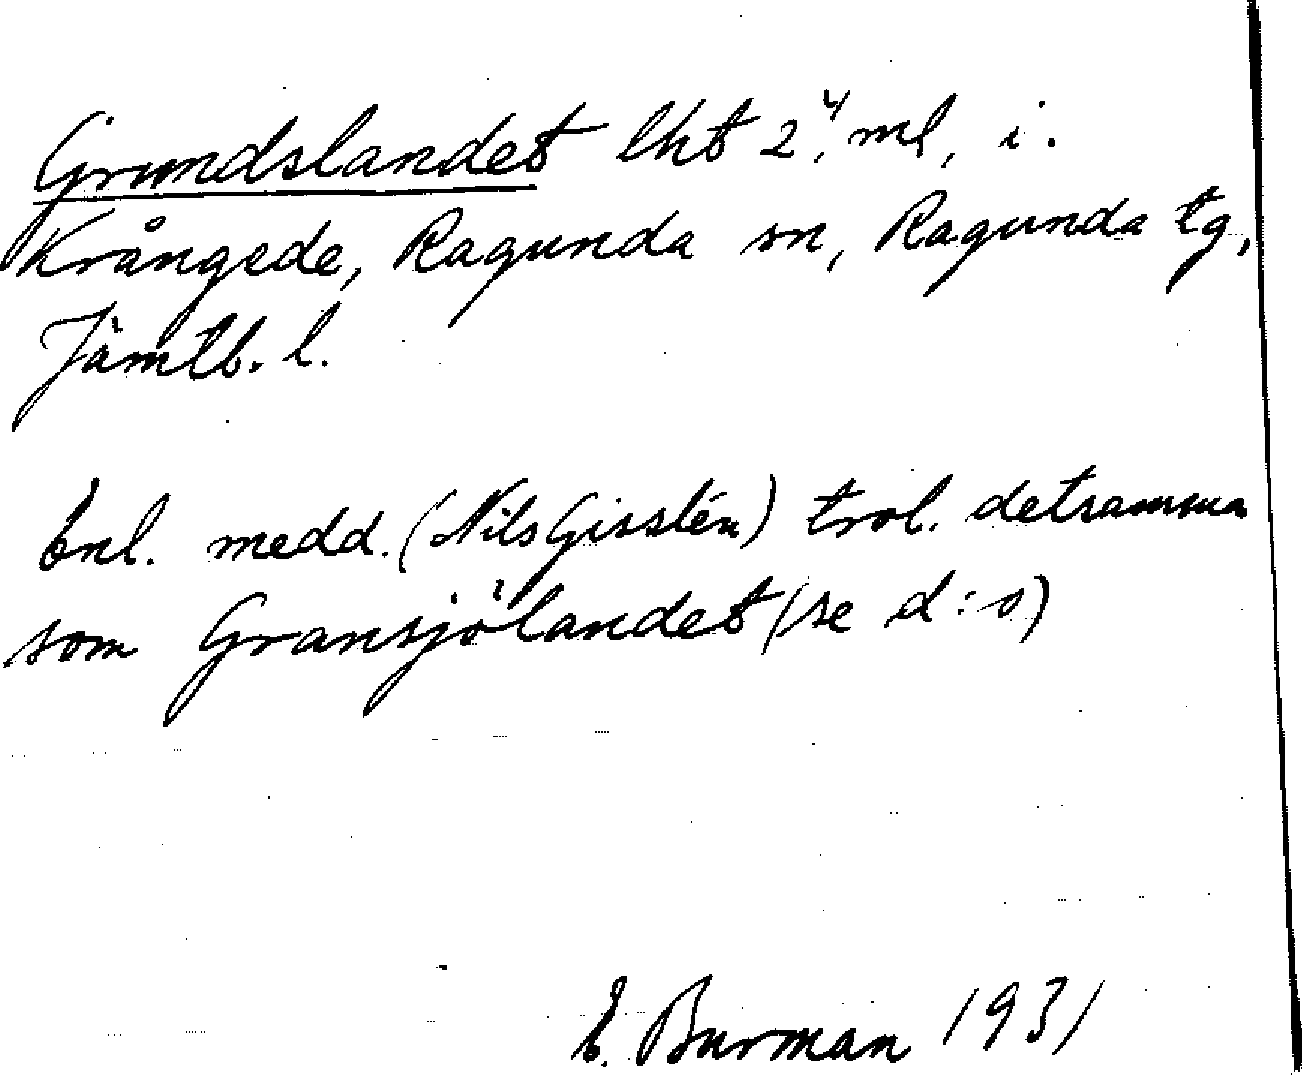 Grundslandet lht 2,4 ml, i.
Krångede, Ragunda sn, Ragunda tg,
Jämtl. l.
Enl. medd. (Nils Gisslén) trol. detsamma
som Gransjölandet (se d:o)
E. Burman 1931